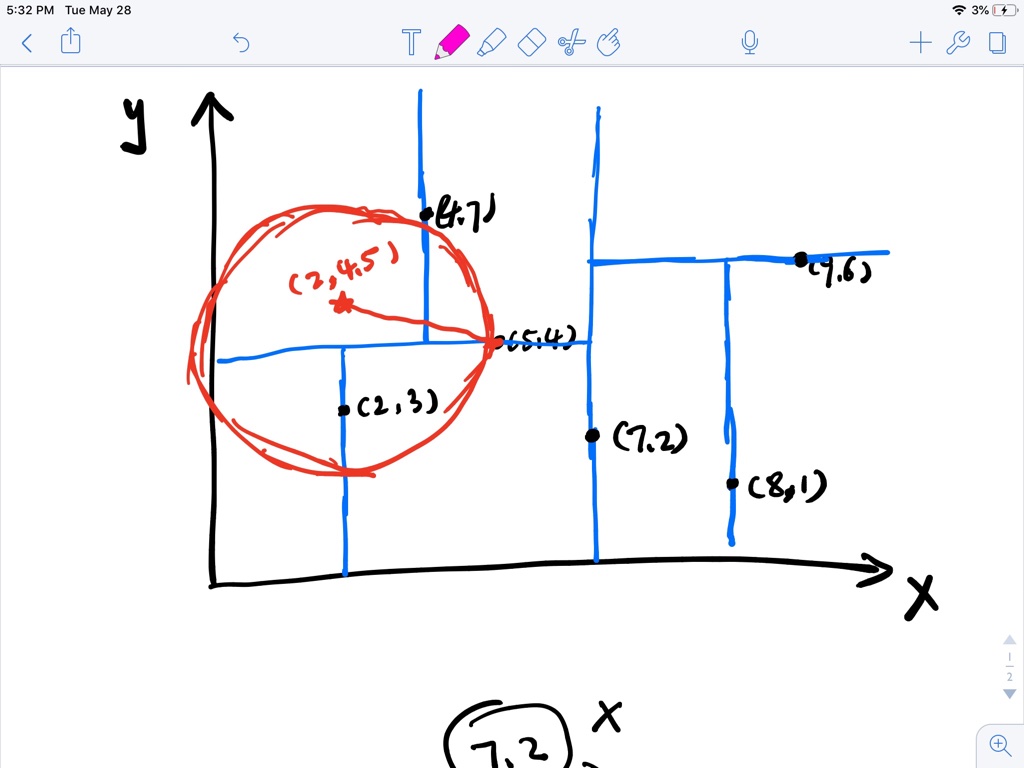 5:32 PM Tue May 28
3%
T
y
(4,7)
(2,4,5)
(9,6)
(5,4)
(2,3)
(7,2)
(8,1)
X
1
2
X
7,2